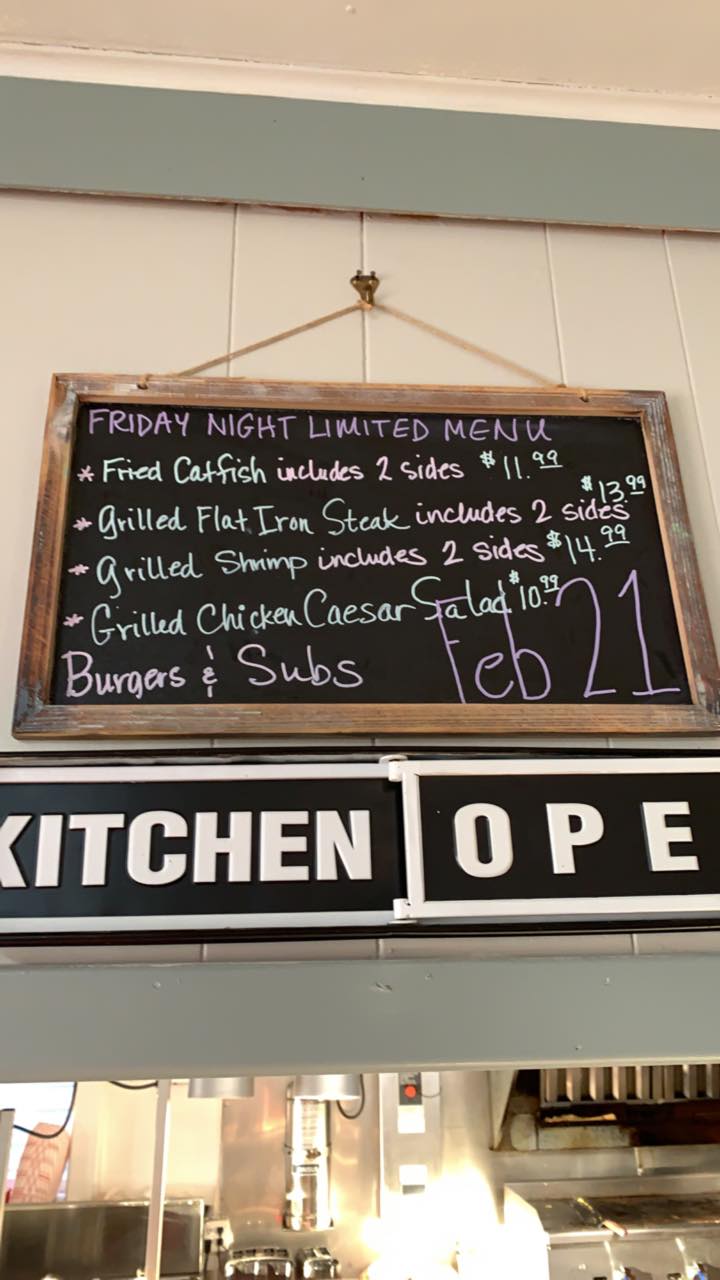 FRIDAY NIGHT LIMITED MENU
* Fried Catfish includes 2 sides $11.99
* Grilled Flat Iron Steak includes 2 sides $13.99
* Grilled Shrimp includes 2 sides $14.99
* Grilled Chicken Caesar Salad $10.99
Burgers & Subs Feb 21
KITCHEN OPE